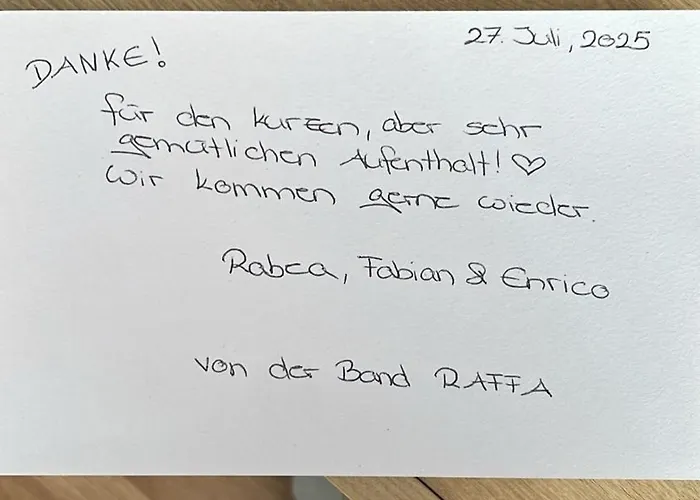 27. Juli, 2025
DANKE!
für den kurzen, aber sehr
gemütlichen Aufenthalt! ♡
wir kommen gerne wieder.
Rabea, Fabian & Enrico
von der Band RAFFA